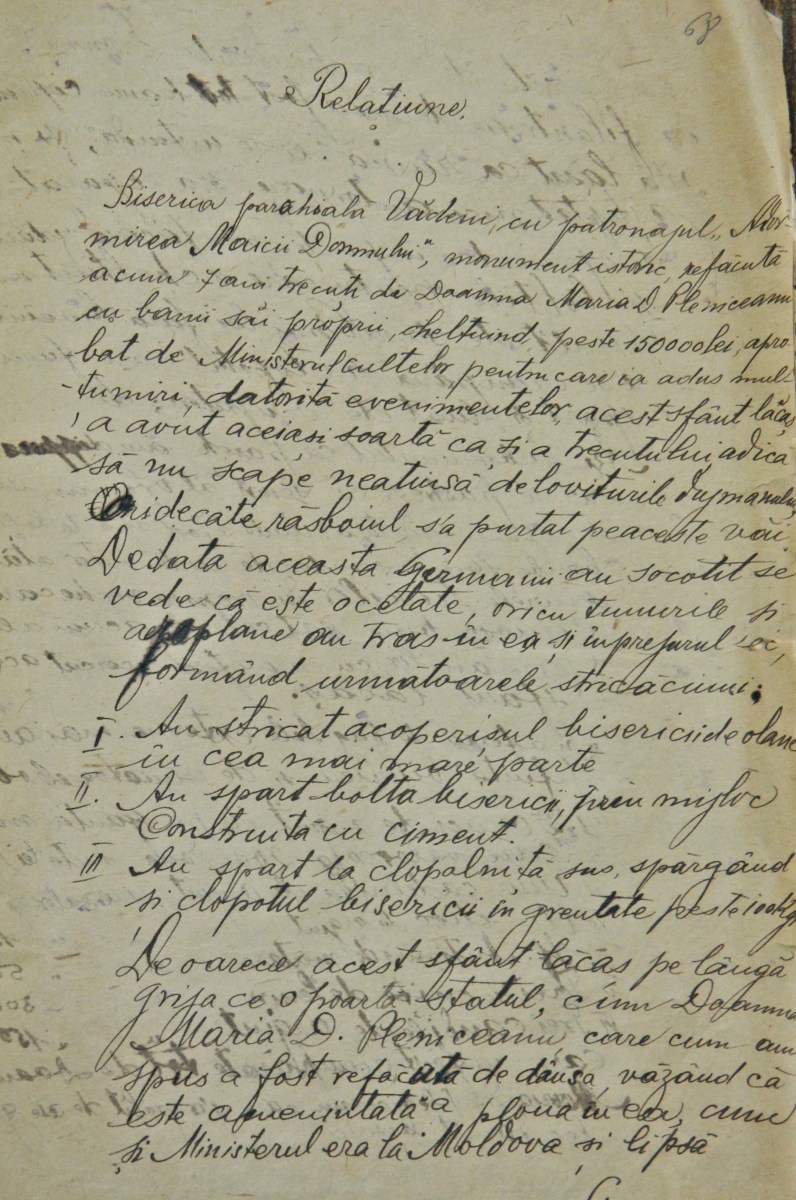 68
Relațiune.
Biserica parahiala Vădeni, cu patronajul „Ador-
mirea Maicii Domnului", monument istoric, refăcută
acum 7 ani trecuți de Doamna Maria D. Pleniceanu
cu banii săi proprii, cheltuind peste 150000 lei, apro
bat de Ministerul cultelor pentru care ia adus mul-
-tumiri, datorită evenimentelor, acest sfânt lăcaș
a avut aceiași soartă ca și a trecutului, adică
să nu scape neatinsă de loviturile dușmanului,
Oridecâte răsboiul s'a purtat peaceste văi.
Dedata aceasta Germanii au socotit se
vede că este ocetate, oricu tunurile și
aeroplane au tras în ea, și înprejurul ei,
formând următoarele stricăciuni:
I. Au stricat acoperișul bisericii de olane
în cea mai mare parte
II. Au spart bolta bisericii, prin mijloc
Construită cu ciment.
III Au spart la clopolniță sus, spărgând
și clopotul bisericii în greutate peste 100 Kgr
Deoarece acest sfânt lăcaș pe lângă
grija ce o poartă statul, cum Doamna
Maria D. Pleniceanu care cum am
spus a fost refăcută de dânsa, văzând că
este amenințată a ploua în ea, cum
și Ministerul era la Moldova și lipsă